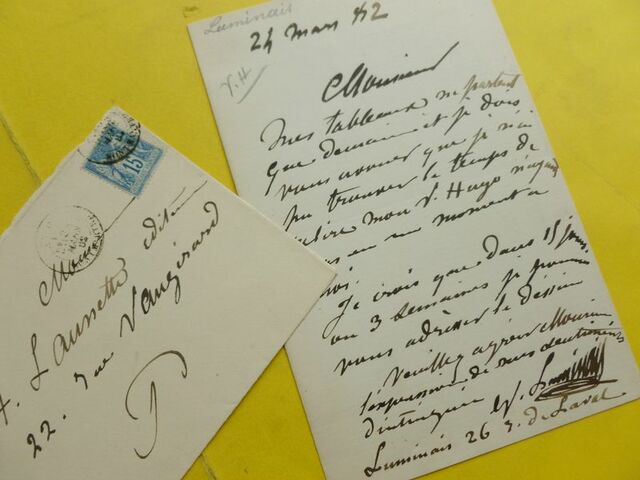 Luminais
24 mars 82
V. H
Monsieur
Mes tableaux ne partent
que demain et je dois
vous avouer que je n'ai
pu trouver le temps de
faire mon V. Hugo n'ayant
pas eu un moment a
moi.
Je crois que dans 15 jours
ou 3 semaines je pourrai
vous adresser le dessin
Veuillez agréer Monsieur
l'expression de mes sentiments
distingués V. Luminais
Luminais 26 r. de Laval
15
Mons
A. Launette editeur
22. rue Vaugirard
P